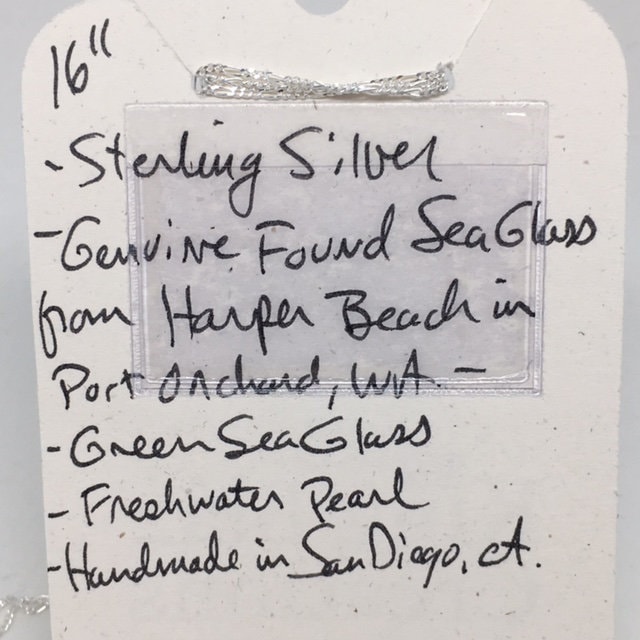 16"
- Sterling Silver
- Genuine Found Sea Glass
from Harper Beach in
Port Orchard, WA. -
- Green Sea Glass
- Freshwater Pearl
- Handmade in San Diego, CA.